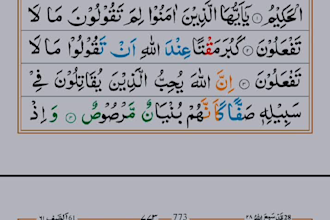 الْحَكِيْمُ ۝۱ يٰۤاَيُّهَا الَّذِيْنَ اٰمَنُوْا لِمَ تَقُوْلُوْنَ مَا لَا
تَفْعَلُوْنَ ۝۲ كَبُرَ مَقْتًا عِنْدَ اللّٰهِ اَنْ تَقُوْلُوْا مَا لَا
تَفْعَلُوْنَ ۝۳ اِنَّ اللّٰهَ يُحِبُّ الَّذِيْنَ يُقَاتِلُوْنَ فِيْ
سَبِيْلِهٖ صَفًّا كَاَنَّهُمْ بُنْيَانٌ مَّرْصُوْصٌ ۝۴ وَ اِذْ
28 قَدْ سَمِعَ اللهُ ۲۸ 773 ۷۷۳ اَلصَّفّ ٦١